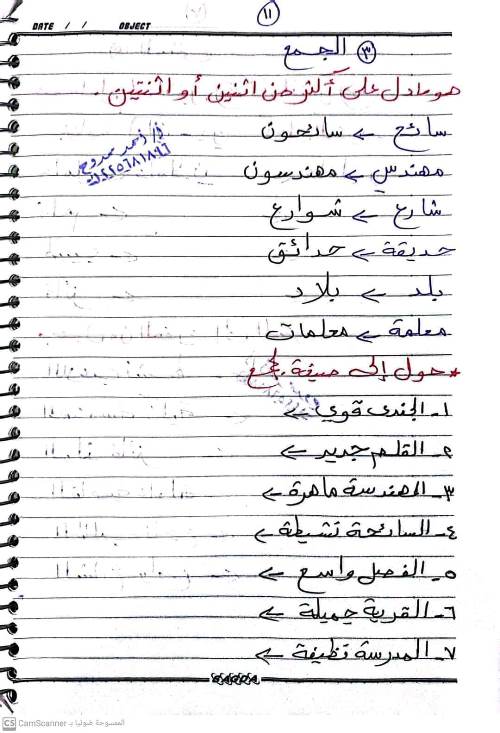 ١١
DATE / / OBJECT
٣ الجمع
هو ما دل على أكثر من اثنين أو اثنتين.
سائح ← سائحون
مهندس ← مهندسون
شارع ← شوارع
حديقة ← حدائق
بلد ← بلاد
معلمة ← معلمات
* حول إلى صيغة الجمع
١- الجندى قوي ←
٢- القلم جديد ←
٣- المهندسة ماهرة ←
٤- السائحة نشيطة ←
٥- الفصل واسع ←
٦- القرية جميلة ←
٧- المدرسة نظيفة ←
CS CamScanner الممسوحة ضوئيا بـ